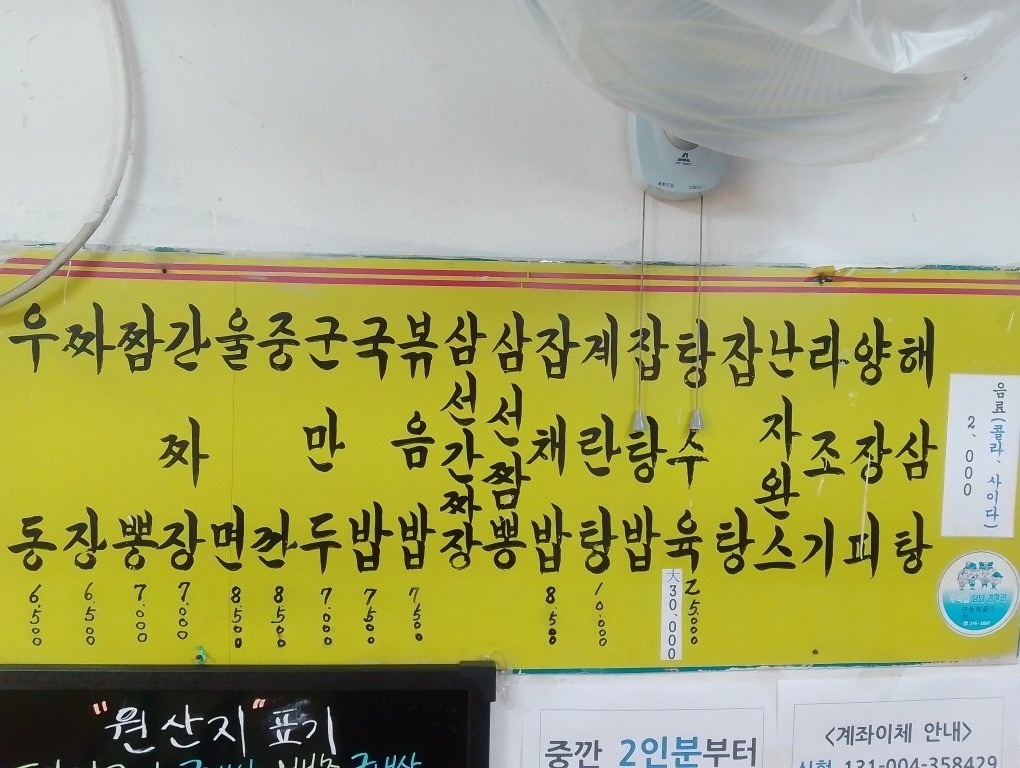 우동 6.500
짜장 6.500
짬뽕 7.000
간짜장 7.000
울면 8500
중깐 8500
군만두 7.000
국밥 7.500
볶음밥 7,500
삼선간짜장
삼선짬뽕
잡채밥 8.500
계란탕 10.000
잡탕밥
탕수육 大 30.000 25000
잡탕
난자완스
라조기
양장피
해삼탕
음료(콜라、사이다)
2、000
"원산지" 표기
중깐 2인분부터
<계좌이체 안내>
신협 131-004-358429